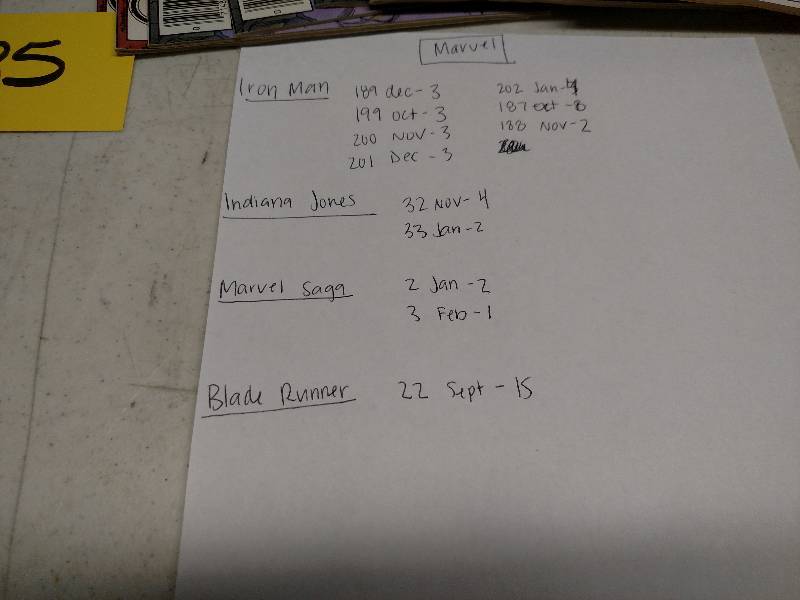 35
Marvel
Iron Man
189 dec - 3
199 oct - 3
200 Nov - 3
201 Dec - 3
202 Jan -
187 oct - 8
188 Nov - 2
Indiana Jones
32 Nov - 4
33 Jan - 2
Marvel Saga
2 Jan - 2
3 Feb - 1
Blade Runner
22 Sept - 15